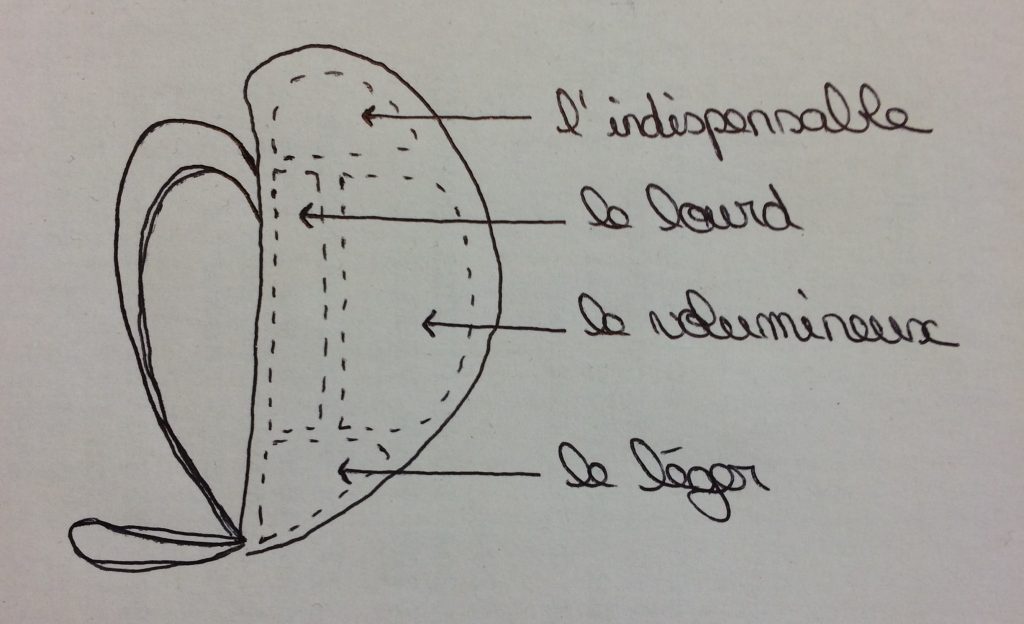 l'indispensable
le lourd
le volumineux
le léger